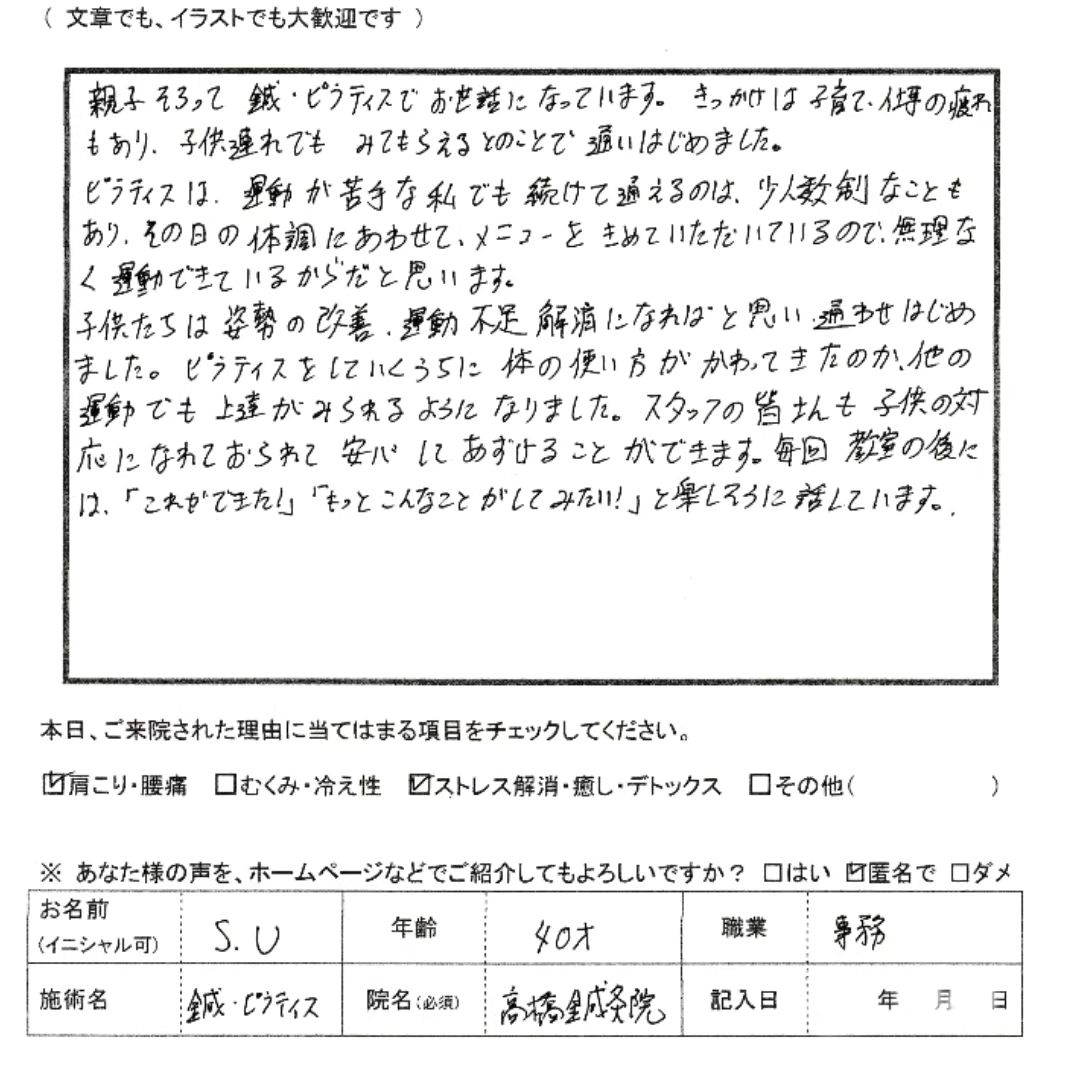 ( 文章でも、イラストでも大歓迎です )
親子そろって 鍼・ピラティスでお世話になっています。 きっかけは子育て、仕事の疲れ
もあり、子供連れでも みてもらえるとのことで通いはじめました。
ピラティスは、運動が苦手な私でも続けて通えるのは、少人数制なことも
あり、その日の体調にあわせて、メニューをきめていただいているので、無理な
く運動できているからだと思います。
子供たちは姿勢の改善、運動不足解消になればと思い、通わせはじめ
ました。ピラティスをしていくうちに 体の使い方がかわってきたのか、他の
運動でも上達がみられるようになりました。スタッフの皆さんも子供の対
応になれておられて安心してあずけることができます。毎回 教室の後に
は、「これができた!」「もっとこんなことがしてみたい!」と楽しそうに話しています。
本日、ご来院された理由に当てはまる項目をチェックしてください。
☑肩こり・腰痛 □むくみ・冷え性 ☑ストレス解消・癒し・デトックス □その他( )
※ あなた様の声を、ホームページなどでご紹介してもよろしいですか? □はい ☑匿名で □ダメ
お名前(イニシャル可) S.U 年齢 40才 職業 事務
施術名 鍼・ピラティス 院名(必須) 高橋鍼灸院 記入日 年 月 日